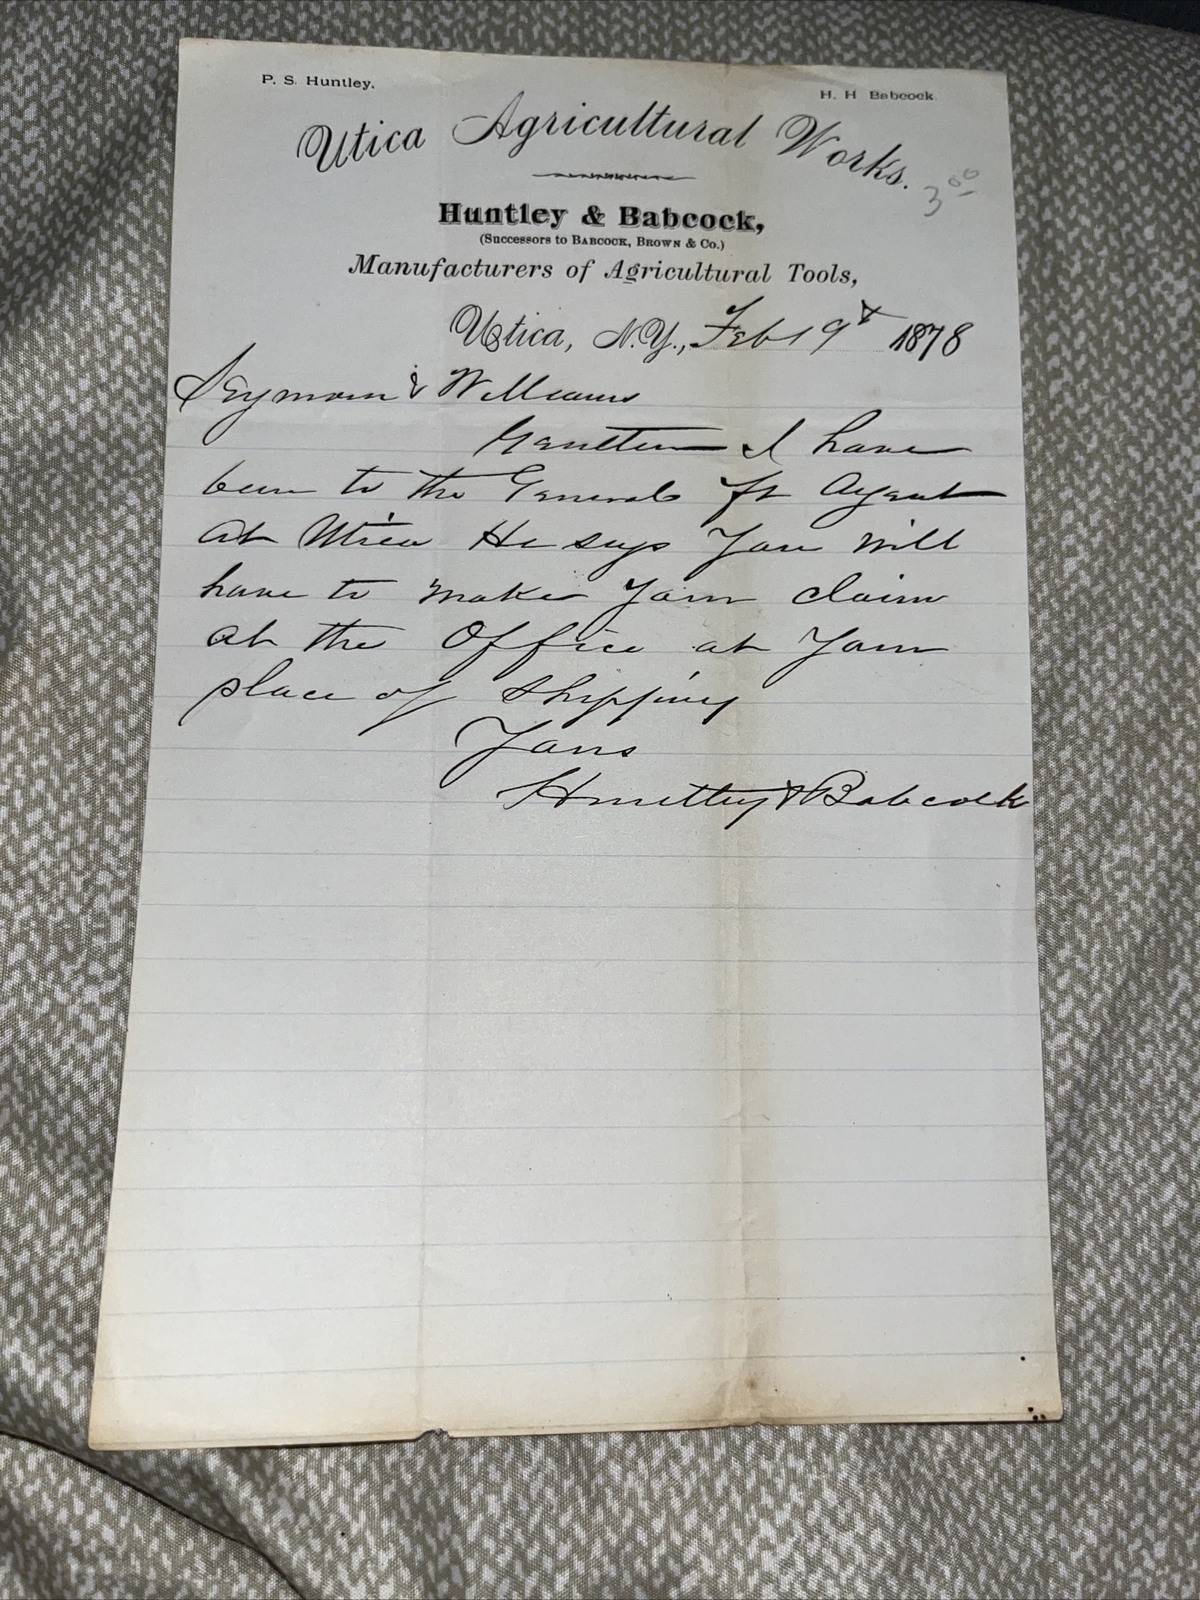 P. S. Huntley.
H. H. Babcock.
Utica Agricultural Works.
3 00
Huntley & Babcock,
(Successors to Babcock, Brown & Co.)
Manufacturers of Agricultural Tools,
Utica, N.Y., Feb 19th 1878
Seymour & Williams
Gentlemen I have
been to the General ft Agent
at Utica He says you will
have to make your claim
at the Office at your
place of Shipping
Yours
Huntley & Babcock